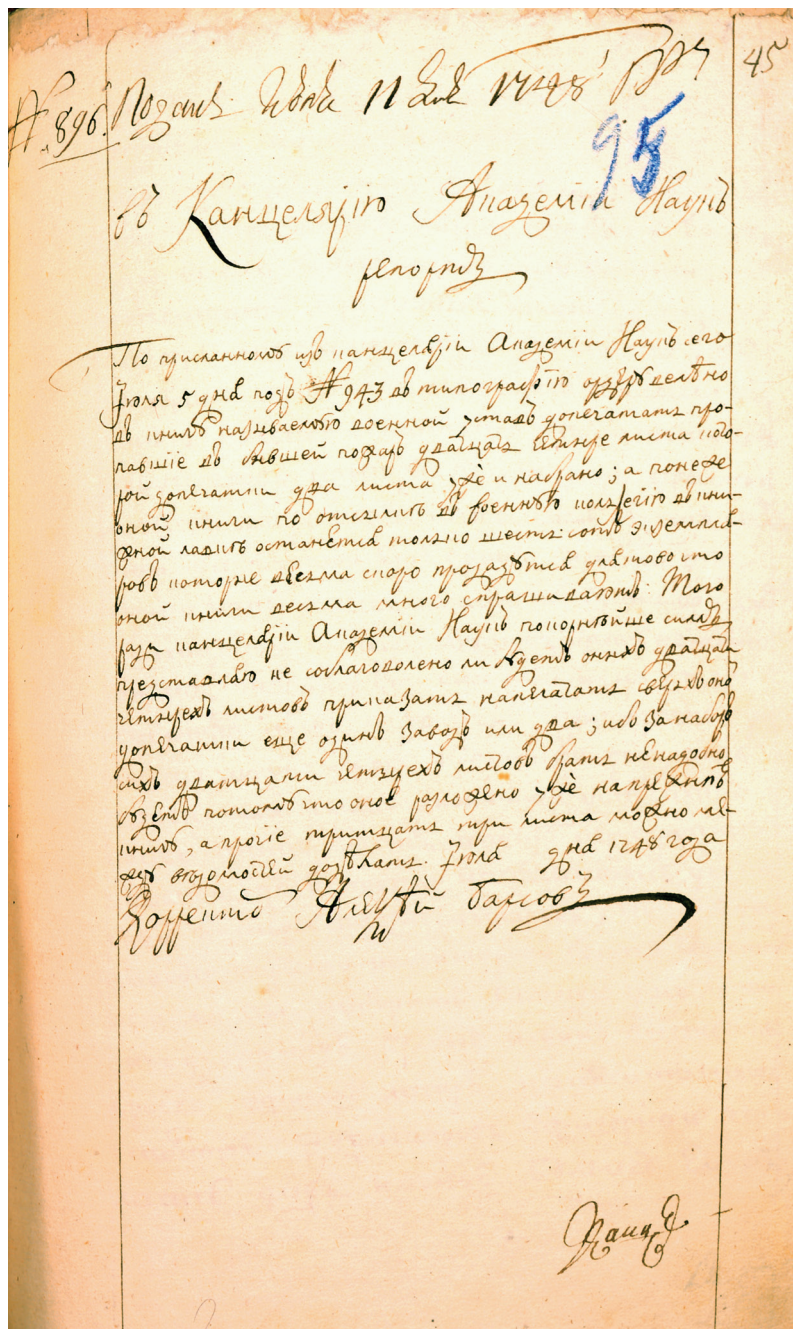 45
№ 896. Подан июля 11 дня 1748
95
въ Канцелярїю Академїи Наукъ
репортъ
По присланному изъ канцелярїи Академїи Наукъ сего
Iюля 5 дня подъ № 943 въ типографїю ордеру велѣно
въ книгѣ называемой военной уставъ допечатать про-
павшїе въ бывшей пожаръ дватцать четыре листа кото-
рой допечатки два листа уже и набрано; а понеже
оной книги по отсылкѣ въ военную коллегїю въ кни-
жной лавкѣ останется только шесть сотъ экземпля-
ровъ которые весма скоро продадутся для тово что
оной книги весма много спрашиваютъ. Того
ради канцелярїи Академїи Наукъ покорнѣйше симъ
представляю не соблаговолено ли будетъ оныхъ дватцати
четырехъ листовъ приказать напечатать сверхъ оно
допечатки еще одинъ заводъ или два; ибо за наборъ
сихъ дватцати четырехъ листовъ брать ненадобно
будетъ потому что оное разложено уже на прежнїе
книги, а прочїе тритцать три листа можно ме-
жду вѣдомостей додѣлать. Iюля дня 1748 года
Корректоръ Алеѯѣй Барсовъ